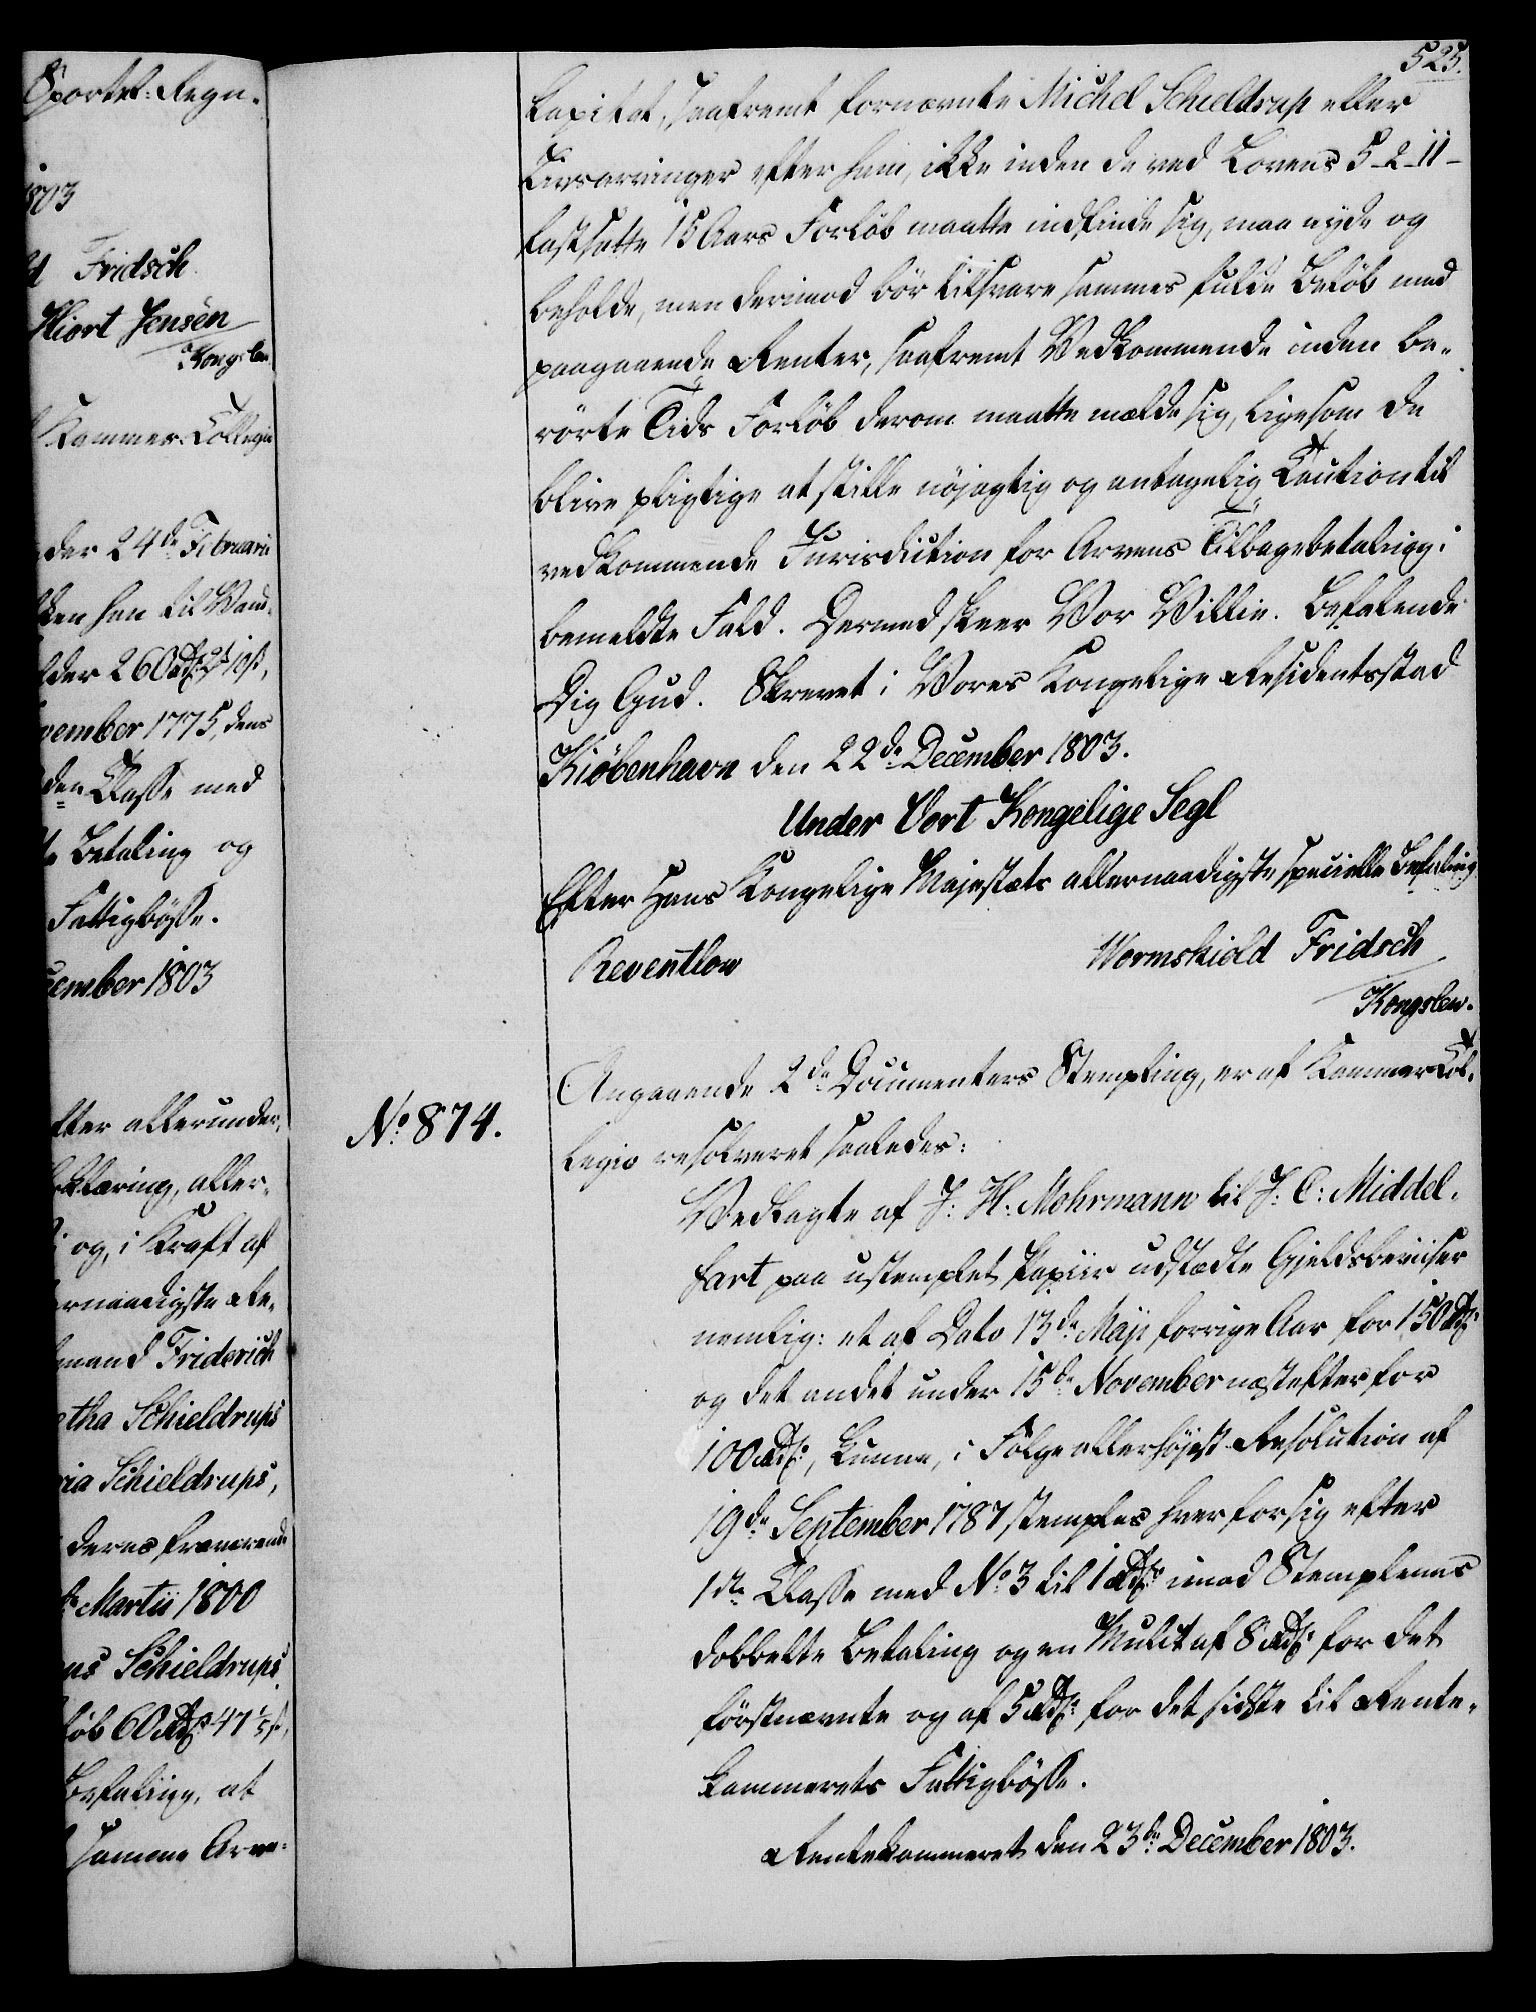 Sportel-Regn.
1803
Fridsch
Hiort Jensen
Kongslew
Kammer-Collegie
der 24de Februarii
ken hen til Vand-
der 260 rdl 2 mk 10 s,
vember 1775, dens
den Classe med
te Betaling og
Fattigbösse.
cember 1803
fter allerunder-
klæring, aller-
og, i Kraft af
rnaadigste Re-
mand Friderich
etha Schieldrups
ria Schieldrups,
deres fraværende
Martii 1800
ns Schieldrups
löb 60 rdl 47 1/5 s,
Befaling, at
samme Arve-
525.
Capital, saafremt fornævnte Michel Schieldrup eller
Livsarvinger efter ham, ikke inden de ved Lovens 5-2-11-
fastsatte 15 Aars Forløb maatte indfinde sig, maa nyde og
beholde, men derimod bör tilsvare sammes fulde Beløb med
paagaaende Renter, saafremt Vedkommende inden be-
rörte Tids Forløb derom maatte melde sig, ligesom de
blive pligtige at stille nöjagtig og antagelig Caution til
vedkommende Jurisdiction for Arvens Tilbagebetaling i
bemeldte Fald. Dermed skeer Vor Villie. Befalende
Dig Gud. Skrevet i Vores Kongelige Residentsstad
Kiöbenhavn den 22de December 1803.
Under Vort Kongelige Segl
Efter Hans Kongelige Majestæts allernaadigste specielle Befaling
Reventlow
Wormskiold Fridsch
Kongslew.
No. 874.
Angaaende 2de Documenters Stempling, er af Kammer-Col-
legio resolveret saaledes:
Vedlagte af J: H: Mohrmann til J: C: Middel-
fart paa ustemplet Papiir udstædte Gjeldsbeviiser
nemlig: et af Dato 13de Maji forrige Aar for 150 rdl
og det andet under 15de November næstefter for
100 rdl, kunne, i Følge allerhöjest Resolution af
19de September 1787 stemples hver for sig efter
1ste Classe med No 3 til 1 rdl imod Stemplernes
dobbelte Betaling og en Mulct af 8 rdl for det
förstnævnte og af 5 rdl for det sidste til Rente-
kammerets Fattigbösse.
Rentekammeret den 23de December 1803.